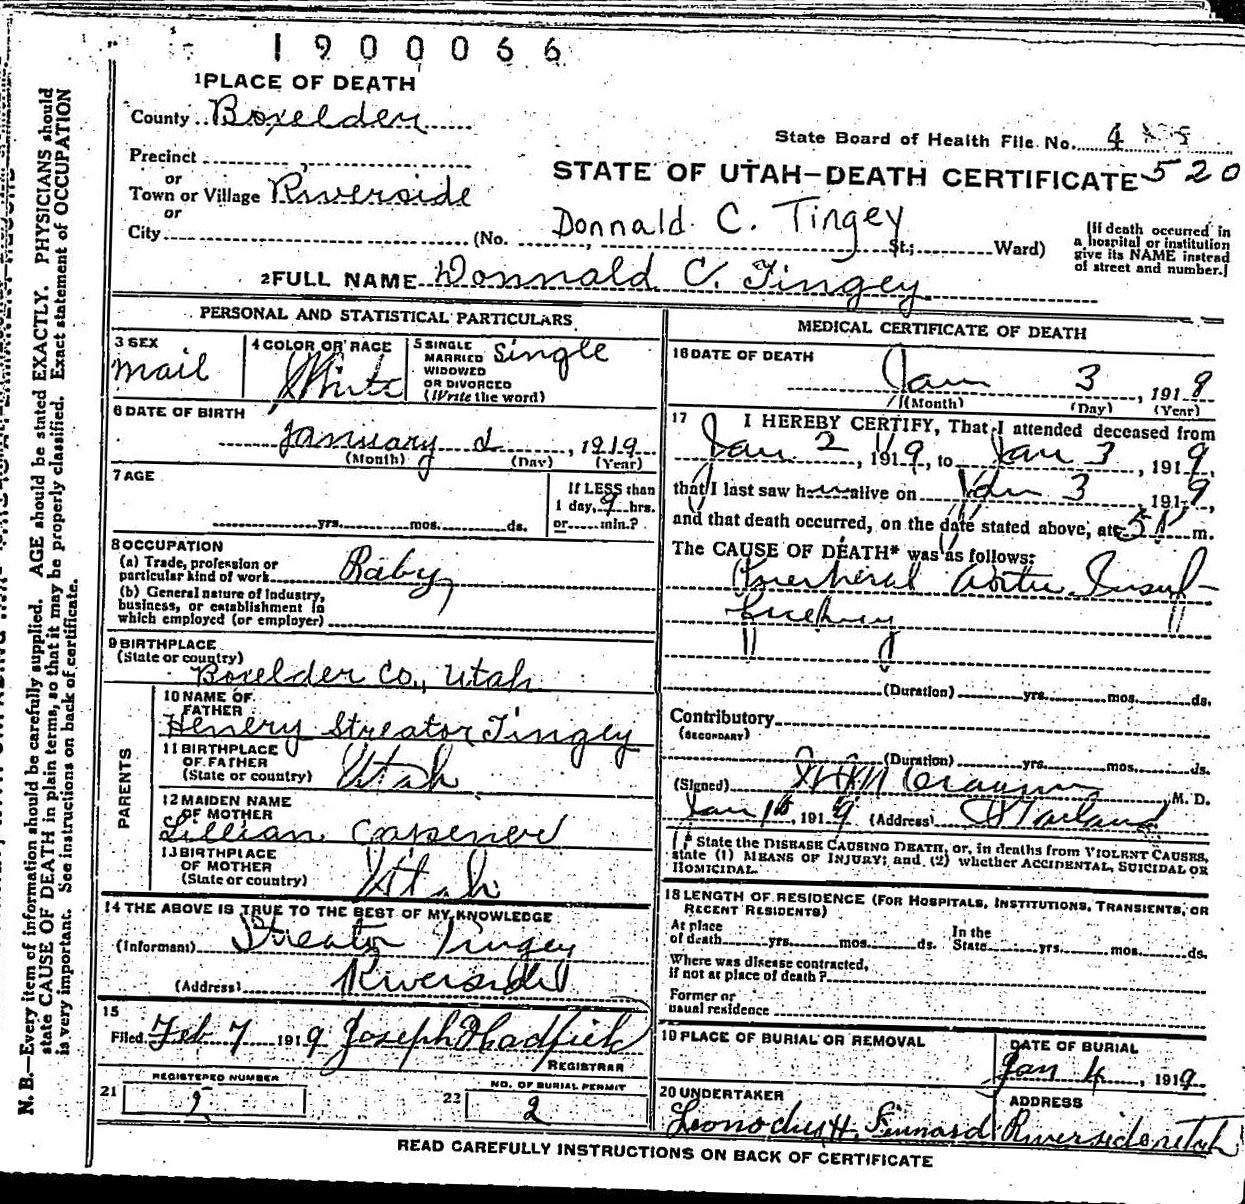 1900066
1 PLACE OF DEATH
County Boxelder
State Board of Health File No. 4
Precinct
or
STATE OF UTAH—DEATH CERTIFICATE 520
Town or Village Riverside
or
Donnald C. Tingey
City (No. , St.; Ward)
[If death occurred in
a hospital or institution
give its NAME instead
of street and number.]
2 FULL NAME Donnald C. Tingey
PERSONAL AND STATISTICAL PARTICULARS
3 SEX
mail
4 COLOR OR RACE
White
5 SINGLE
MARRIED
WIDOWED
OR DIVORCED
(Write the word)
Single
6 DATE OF BIRTH
January 2, 1919
(Month) (Day) (Year)
7 AGE
yrs. mos. ds.
If LESS than
1 day, 9 hrs.
or min.?
8 OCCUPATION
(a) Trade, profession or
particular kind of work Baby
(b) General nature of Industry,
business, or establishment in
which employed (or employer)
9 BIRTHPLACE
(State or country)
Boxelder Co., Utah
PARENTS
10 NAME OF
FATHER
Henery Streator Tingey
11 BIRTHPLACE
OF FATHER
(State or country) Utah
12 MAIDEN NAME
OF MOTHER
Lillian Capener
13 BIRTHPLACE
OF MOTHER
(State or country) Utah
14 THE ABOVE IS TRUE TO THE BEST OF MY KNOWLEDGE
(Informant) Streator Tingey
(Address) Riverside
15
Filed Feb 7 1919 Joseph Hadfield
REGISTRAR
REGISTERED NUMBER
21
NO. OF BURIAL PERMIT
22 2
MEDICAL CERTIFICATE OF DEATH
16 DATE OF DEATH
Jan 3, 1919
(Month) (Day) (Year)
17 I HEREBY CERTIFY, That I attended deceased from
Jan 2, 1919, to Jan 3, 1919,
that I last saw h alive on Jan 3, 1919,
and that death occurred, on the date stated above, at 5 m.
The CAUSE OF DEATH* was as follows:
(Duration) yrs. mos. ds.
Contributory
(SECONDARY)
(Duration) yrs. mos. ds.
(Signed) M. D.
Jan , 1919 (Address) Garland
* State the DISEASE CAUSING DEATH, or, in deaths from VIOLENT CAUSES,
state (1) MEANS OF INJURY; and (2) whether ACCIDENTAL, SUICIDAL OR
HOMICIDAL.
18 LENGTH OF RESIDENCE (FOR HOSPITALS, INSTITUTIONS, TRANSIENTS, OR
RECENT RESIDENTS)
At place
of death yrs. mos. ds.
In the
State yrs. mos. ds.
Where was disease contracted,
if not at place of death?
Former or
usual residence
19 PLACE OF BURIAL OR REMOVAL
DATE OF BURIAL
Jan 4, 1919
20 UNDERTAKER
ADDRESS
Riverside Utah
READ CAREFULLY INSTRUCTIONS ON BACK OF CERTIFICATE
N. B.—Every item of information should be carefully supplied. AGE should be stated EXACTLY. PHYSICIANS should
state CAUSE OF DEATH in plain terms, so that it may be properly classified. Exact statement of OCCUPATION
is very important. See instructions on back of certificate.